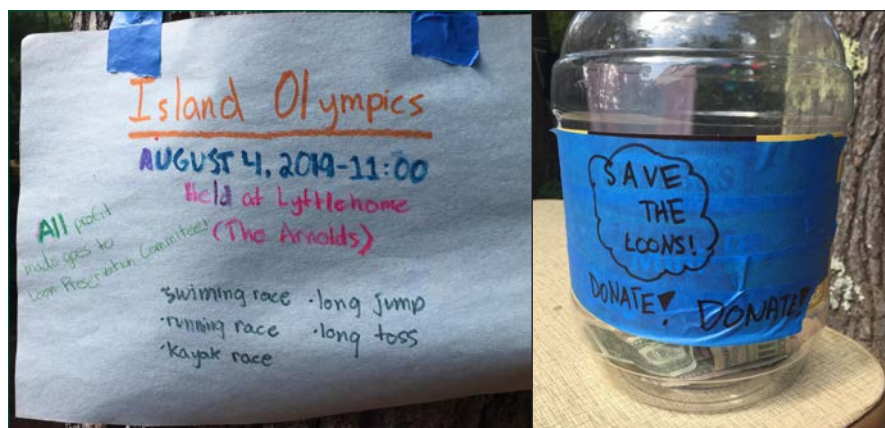 Island Olympics
AUGUST 4, 2019-11:00
Held at Lyttlehome
(The Arnolds)
All profit
made goes to
Loon Preservation Committee!
·swiming race
·running race
·kayak race
·long jump
·long toss
SAVE
THE
LOONS!
DONATE! DONATE!